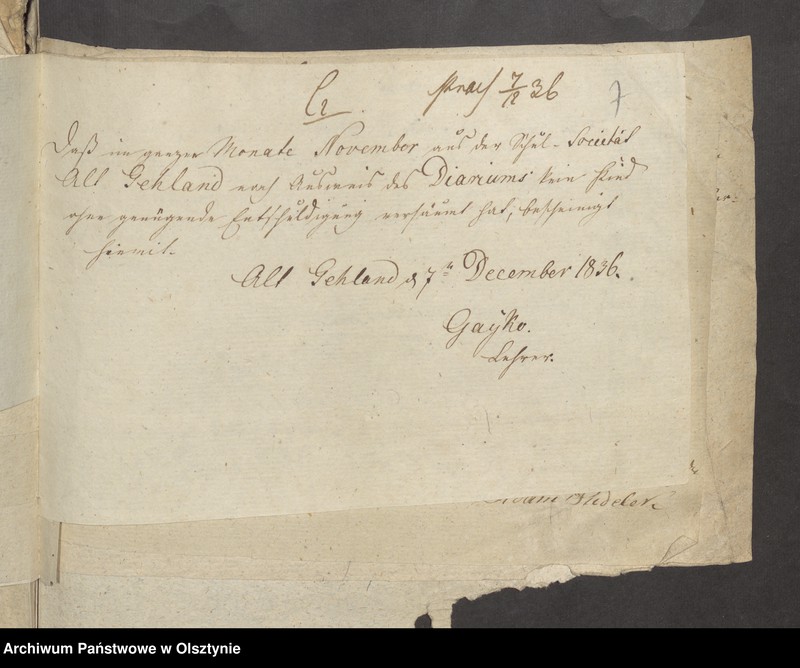 praes 7/12 36
7
Daß im ganzen Monate November aus der Schul-Societät
Alt Gehland nach Ausweis des Diariums kein Kind
ohne genügende Entschuldigung versäumt hat, bescheinigt
hiemit.
Alt Gehland d 7t December 1836.
Gayko.
Lehrer.
Archiwum Państwowe w Olsztynie